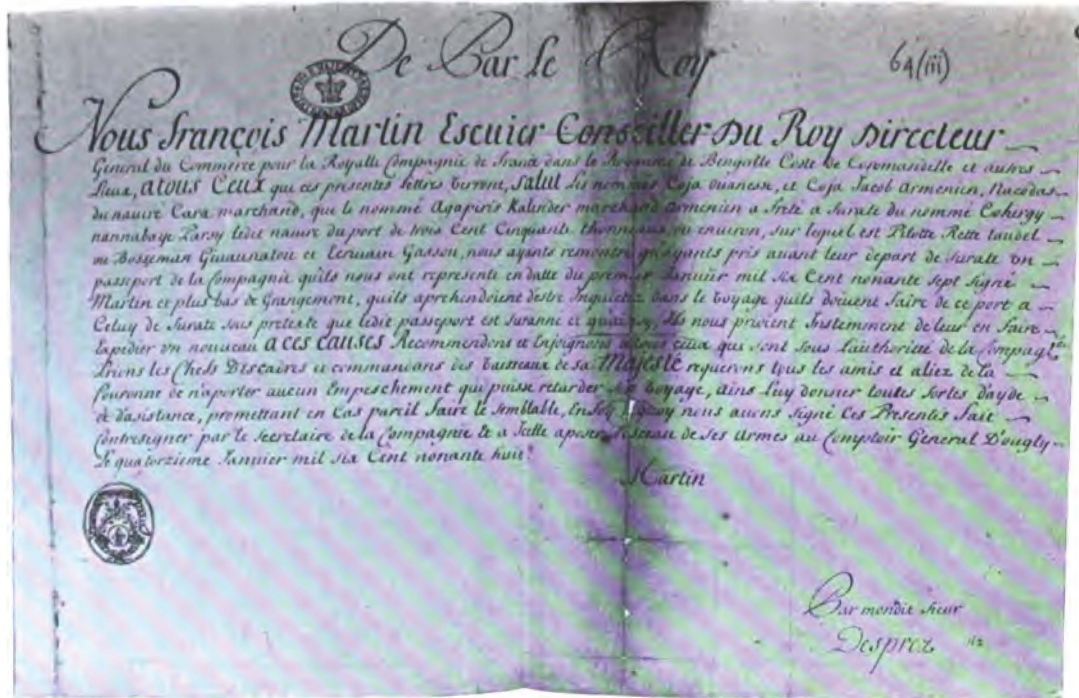 De Par le Roy
64(iii)
Nous François Martin Escuier Conseiller Du Roy Directeur
General du Commerce pour la Royalle Compagnie de France dans le Royaume de Bengalle Coste de Coromandelle et autres
Lieux, atous Ceux qui ces presentes lettres verront, salut Les nommés Coja ouanesse, et Coja Jacob Armenien, Nacodas
du nauire Cara marchand, que le nommé Agapiris Kalender marchand Armenien a freté a Surate du nommé Cohergy
nannabaye Parsy ledit nauire du port de trois Cent Cinquante thonneaux ou enuiron, sur lequel est Pilotte Rette tandel
ou Bosseman Giuaunatou et Ecriuain Gasson, nous ayants remontré qu'ayants pris auant leur depart de Surate vn
passeport de la Compagnie quils nous ont representé en datte du premier Januier mil six Cent nonante sept signé
Martin et plus bas de Grangemont, quils aprehendoient destre Inquietez dans le voyage quils doiuent faire de ce port a
Celuy de Surate sous pretexte que ledit passeport est suranné et Ils nous prioient Instemment de leur en faire
Expedier vn nouueau a ces causes Recommendons et Enjoignons a tous ceux qui sont sous Lauthorité de la Compagie
Prions les Chefs Descaires et commandans des vaisseaux de sa Majesté requerons tous les amis et aliez de la
Couronne de n'aporter aucun Empeschement qui puisse retarder voyage, ains Luy donner toutes sortes dayde
et dasistance, promettant en Cas pareil faire le semblable, En foy dequoy nous auons signé Ces Presentes fait
Contresigner par le secretaire de la Compagnie et a Icelle aposer le sceau de ses Armes au Comptoir General D'ougly
Le quatorzieme Januier mil six Cent nonante huit
Martin
Par mondit sieur
Desprez